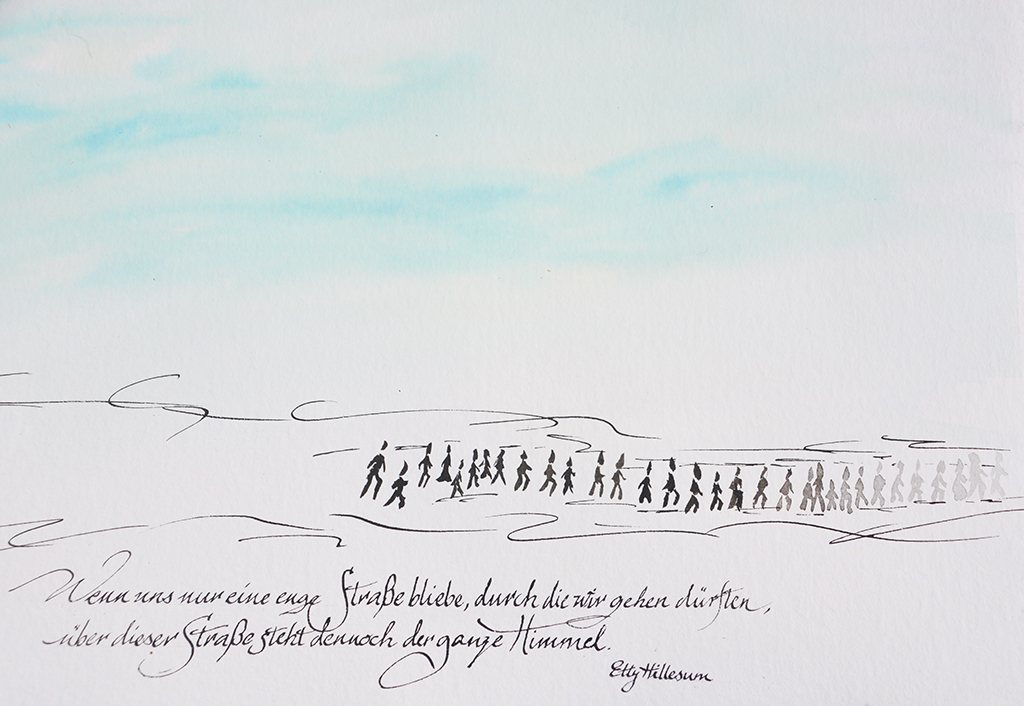 Wenn uns nur eine enge Straße bliebe, durch die wir gehen dürften,
über dieser Straße steht dennoch der ganze Himmel.
Etty Hillesum